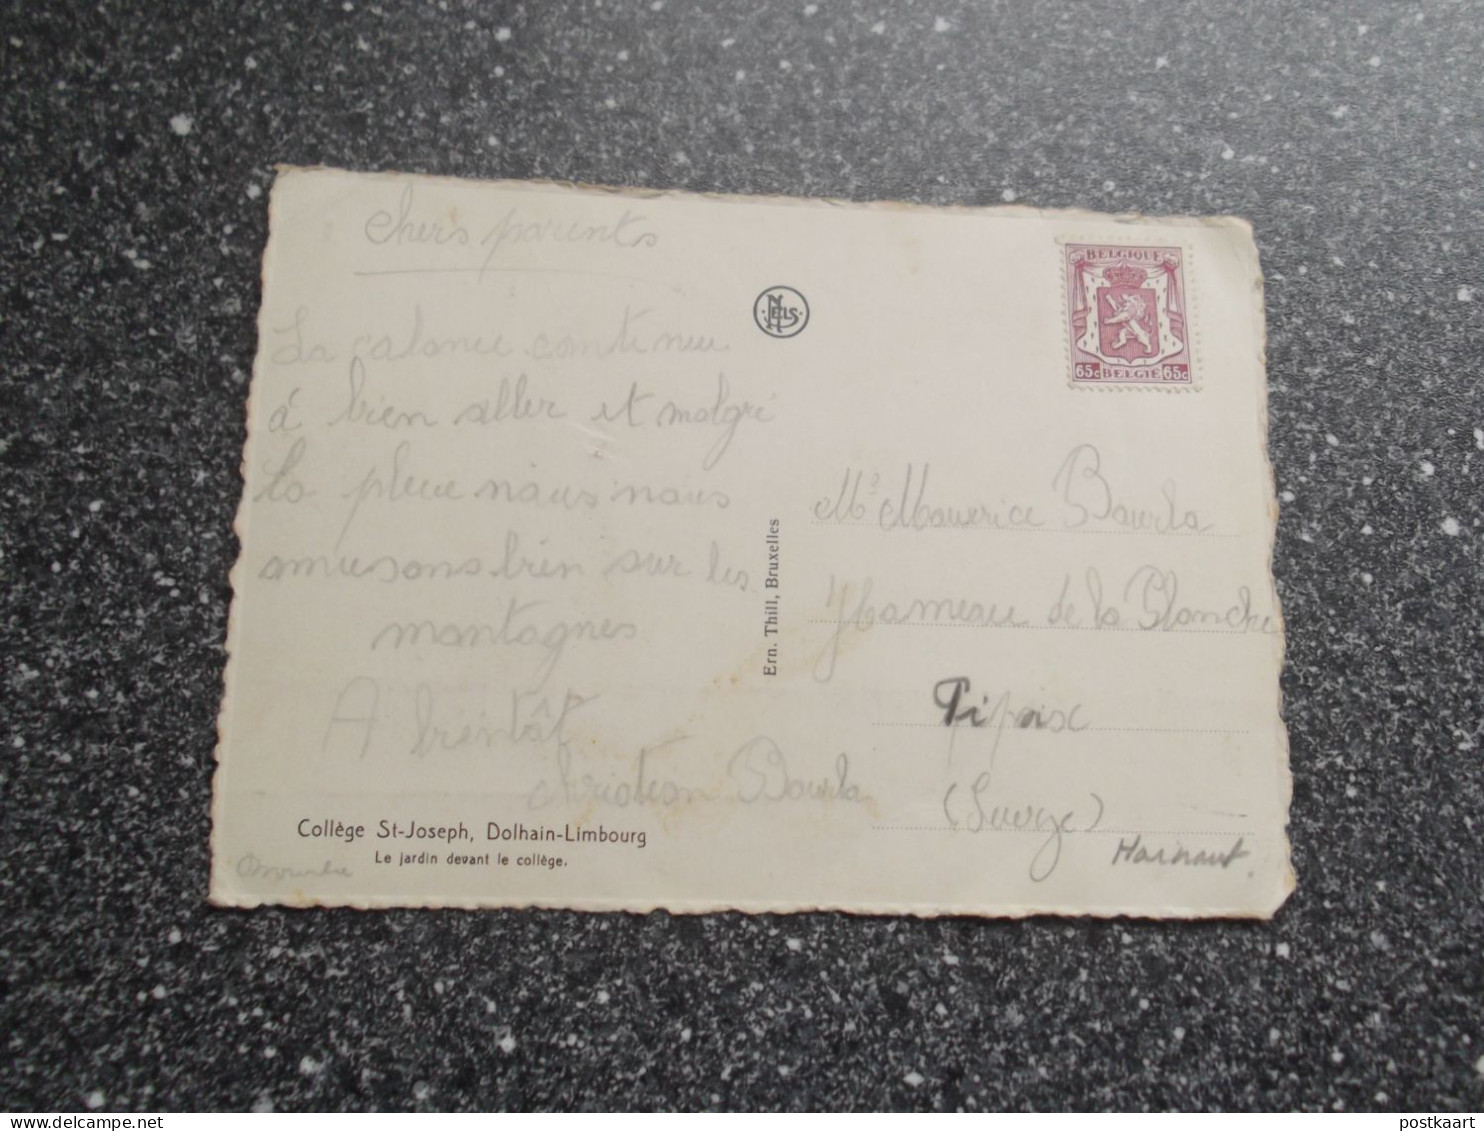 Chers parents
La colonie continue
à bien aller et malgré
la pleue nous nous
amusons bien sur les
montagnes
A bientôt
Christian Bourla
Collège St-Joseph, Dolhain-Limbourg
Le jardin devant le collège.
NELS
Ern. Thill, Bruxelles
BELGIQUE
65c BELGIE 65c
Mr Maurice Bourla
Hameau de la Planche
Pipaix
(Leuze)
Hainaut.
postkaart